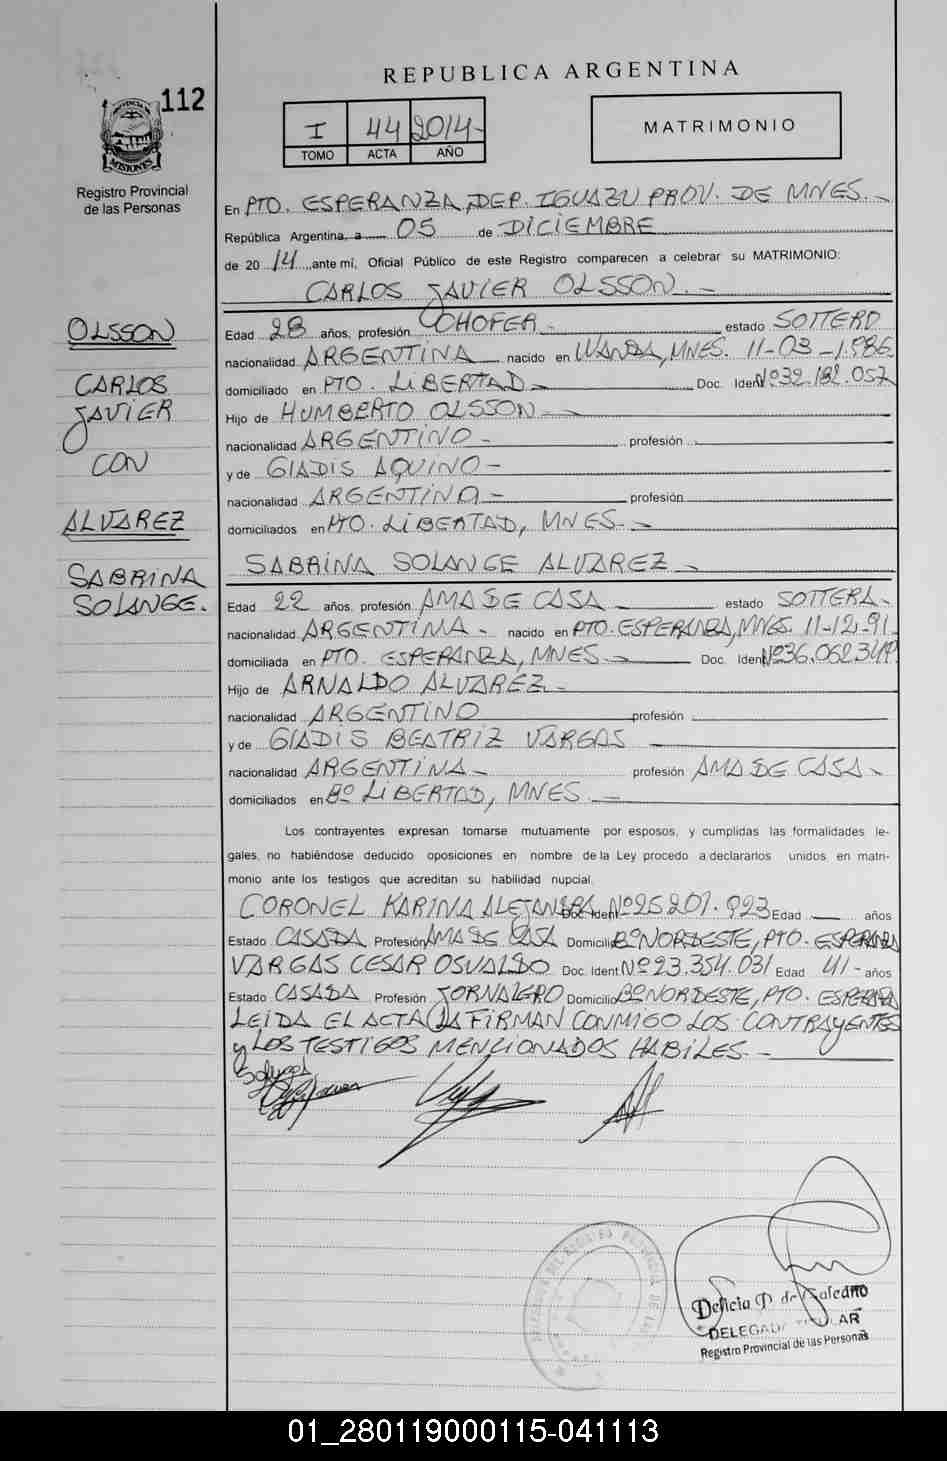 REPUBLICA ARGENTINA
112
I 44 2014-
TOMO ACTA AÑO
MATRIMONIO
PROVINCIA DE
MISIONES
Registro Provincial
de las Personas
En PTO. ESPERANZA, DEP. IGUAZU PROV. DE MNES.-
República Argentina, a 05 de DICIEMBRE
de 2014, ante mí, Oficial Público de este Registro comparecen a celebrar su MATRIMONIO:
CARLOS JAVIER OLSSON.-
OLSSON
CARLOS
JAVIER
CON
ALVAREZ
SABRINA
SOLANGE.
Edad 28 años, profesión CHOFER- estado SOLTERO
nacionalidad ARGENTINA nacido en WANDA, MNES. 11-03-1.986
domiciliado en PTO. LIBERTAD- Doc. Ident Nº32.182.057
Hijo de HUMBERTO OLSSON-
nacionalidad ARGENTINO- profesión
y de GLADIS AQUINO-
nacionalidad ARGENTINA- profesión
domiciliados en PTO. LIBERTAD, MNES.-
SABRINA SOLANGE ALVAREZ-
Edad 22 años, profesión AMA DE CASA estado SOLTERA-
nacionalidad ARGENTINA- nacido en PTO. ESPERANZA, MNES. 11-12-91-
domiciliada en PTO. ESPERANZA, MNES.- Doc. Ident Nº36.062.349
Hijo de ARNALDO ALVAREZ-
nacionalidad ARGENTINO profesión
y de GLADIS BEATRIZ VARGAS
nacionalidad ARGENTINA- profesión AMA DE CASA-
domiciliados en Bº LIBERTAD, MNES.-
Los contrayentes expresan tomarse mutuamente por esposos, y cumplidas las formalidades le-
gales, no habiéndose deducido oposiciones en nombre de la Ley procedo a declararlos unidos en matri-
monio ante los testigos que acreditan su habilidad nupcial.
CORONEL KARINA ALEJANDRA Doc. Ident Nº25.201.923 Edad años
Estado CASADA Profesión AMA DE CASA Domicilio Bº NORDESTE, PTO. ESPERANZA
VARGAS CESAR OSVALDO Doc. Ident Nº23.354.031 Edad 41- años
Estado CASADA Profesión JORNALERO Domicilio Bº NORDESTE, PTO. ESPERANZA
LEIDA EL ACTA LA FIRMAN CONMIGO LOS CONTRAYENTES
y LOS TESTIGOS MENCIONADOS HABILES.-
Delicia D. de Galeano
DELEGADA TITULAR
Registro Provincial de las Personas
01_280119000115-041113